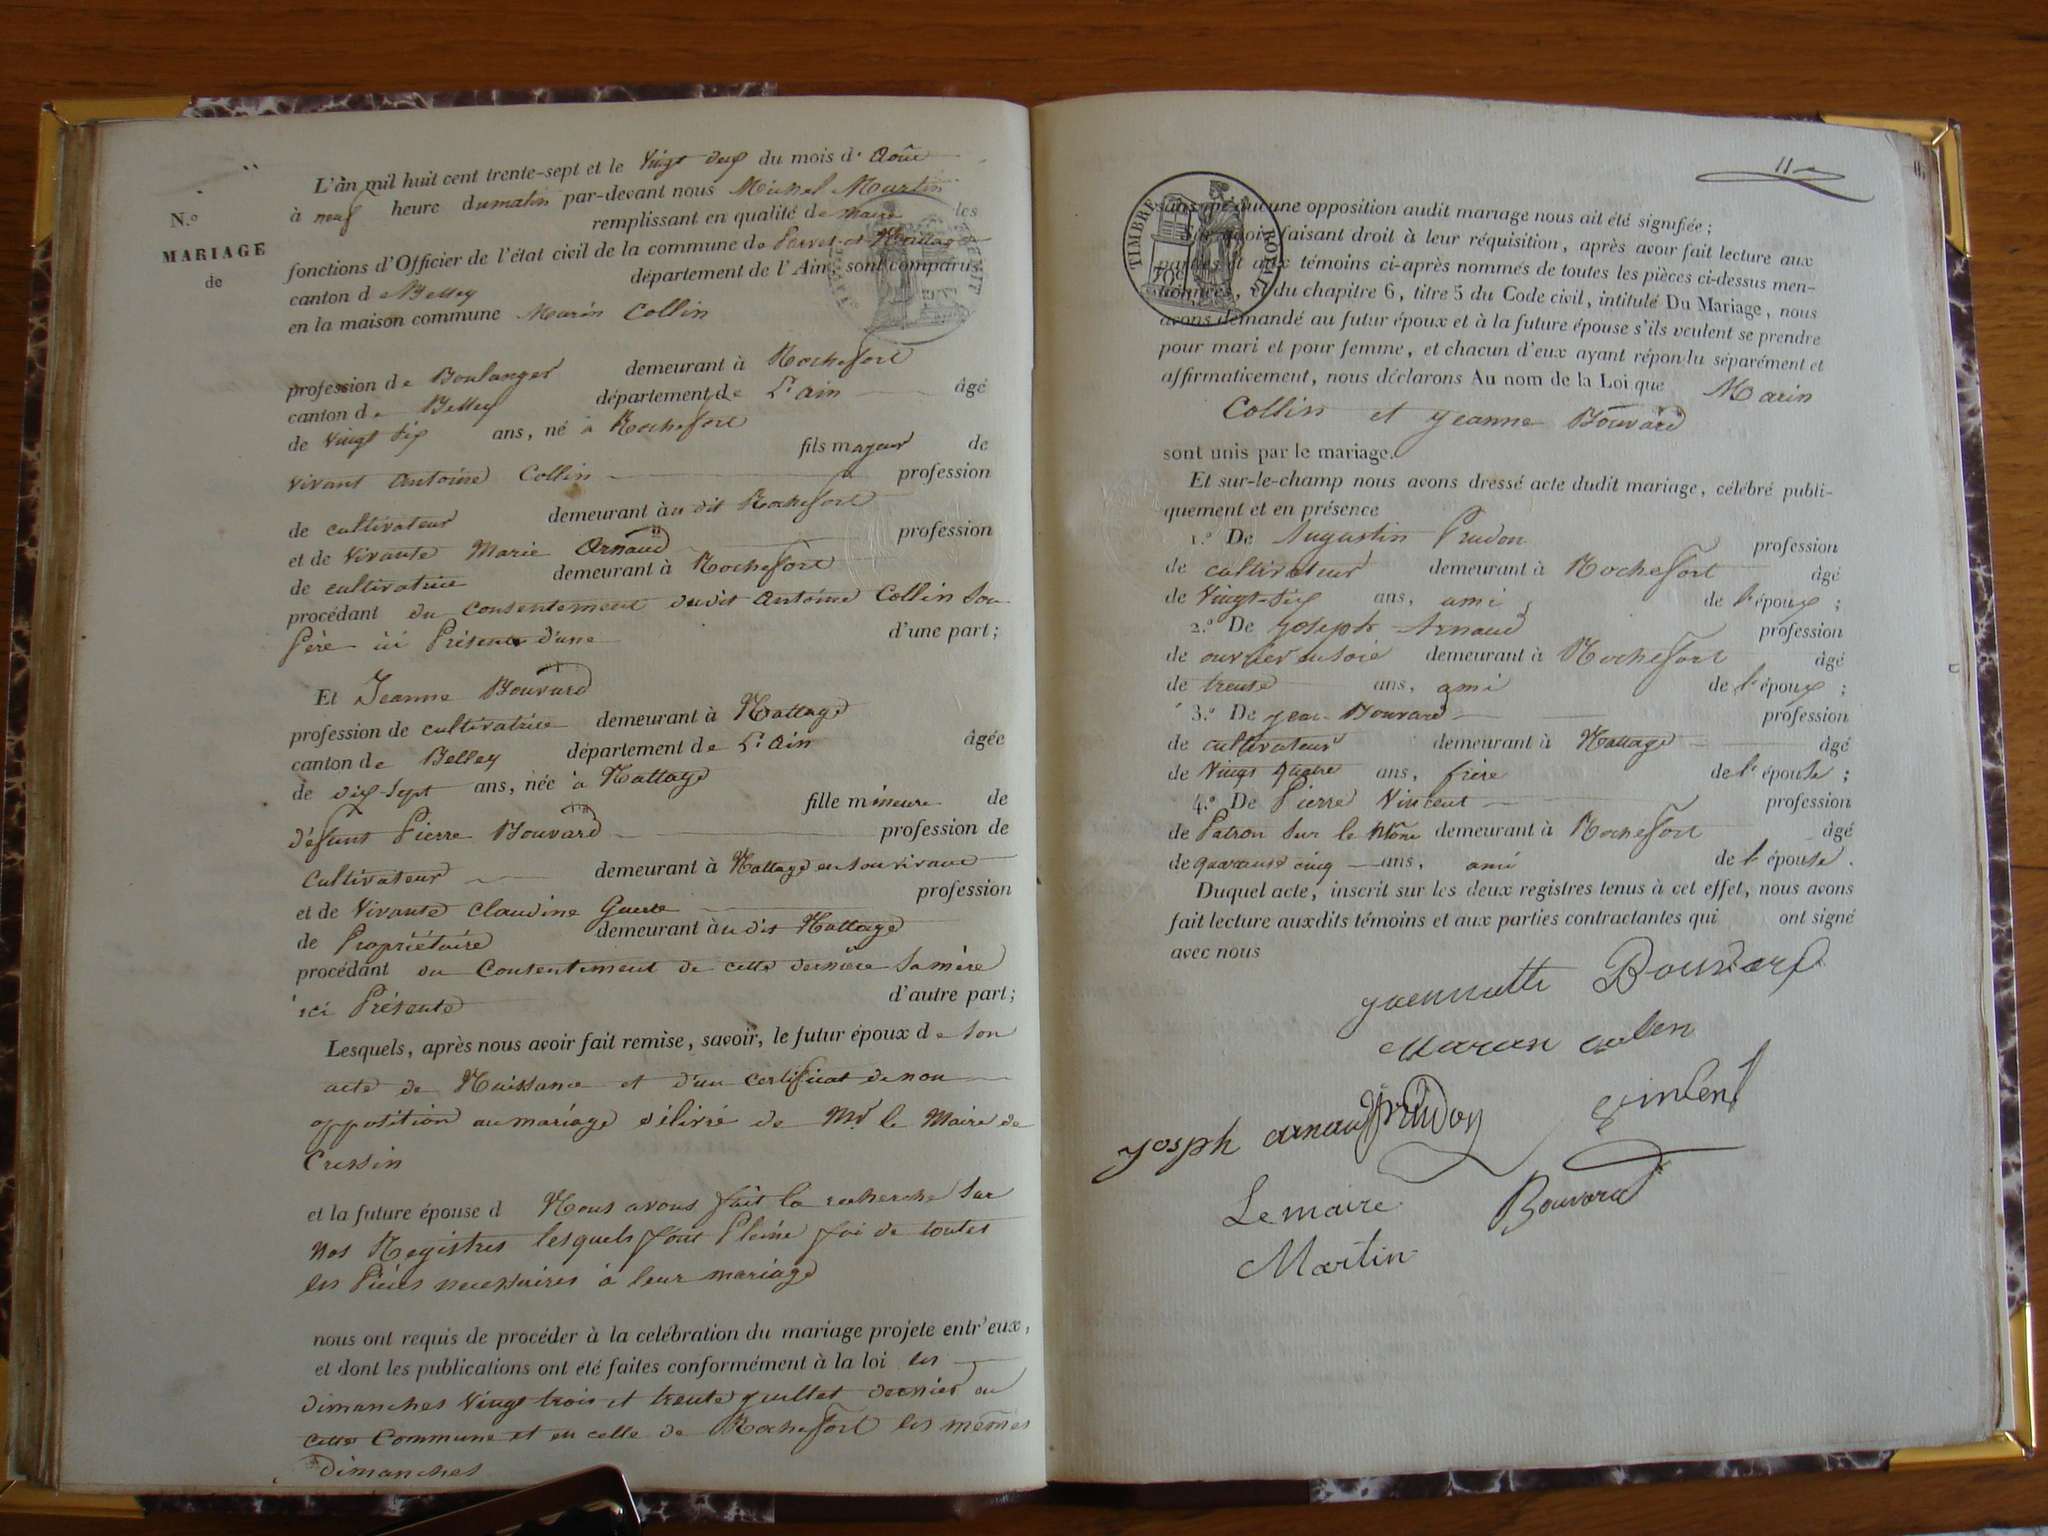 N.º
MARIAGE
de
L'an mil huit cent trente-sept et le vingt deux du mois d'Août
à neuf heure du matin par-devant nous Michel Martin
remplissant en qualité de maire les
fonctions d'Officier de l'état civil de la commune de Parves et Nattage
canton de Belley département de l'Ain, sont comparus
en la maison commune Marin Collin
profession de Boulanger demeurant à Rochefort
canton de Belley département de L'ain âgé
de vingt six ans, né à Rochefort
fils majeur de
vivant antoine Collin profession
de cultivateur demeurant audit Rochefort
et de vivante Marie Arnaud profession
de cultivatrice demeurant à Rochefort
procédant du consentement dudit antoine Collin son
Père ici Présent d'une d'une part;
Et Jeanne Bouvard
profession de cultivatrice demeurant à Nattage
canton de Belley département de L'ain âgée
de dix-sept ans, née à Nattage
fille mineure de
défunt Pierre Bouvard profession de
cultivateur demeurant à Nattage en son vivant
et de vivante claudine profession
de Propriétaire demeurant audit Nattage
procédant du Consentement de cette dernière sa mère
ici Présente d'autre part;
Lesquels, après nous avoir fait remise, savoir, le futur époux de son
acte de Naissance et d'un certificat de non
opposition au mariage délivré de Mr le Maire de
Cressin
et la future épouse d Nous avons fait la recherche sur
nos Registres lesquels font Pleine foi de toutes
les Pièces necessaires à leur mariage
nous ont requis de procéder à la celébration du mariage projete entr'eux,
et dont les publications ont été faites conformément à la loi les
dimanches vingt trois et trente juillet dernier en
cette Commune et en celle de Rochefort les mêmes
dimanches
11e
TIMBRE ROYAL
sans que aucune opposition audit mariage nous ait été signifiée;
Sur quoi faisant droit à leur réquisition, après avoir fait lecture aux
parties et aux témoins ci-après nommés de toutes les pièces ci-dessus men-
tionnées, et du chapitre 6, titre 5 du Code civil, intitulé Du Mariage, nous
avons demandé au futur époux et à la future épouse s'ils veulent se prendre
pour mari et pour femme, et chacun d'eux ayant répondu séparément et
affirmativement, nous déclarons Au nom de la Loi que Marin
Collin et jeanne Bouvard
sont unis par le mariage.
Et sur-le-champ nous avons dressé acte dudit mariage, célébré publi-
quement et en présence
1.º De Augustin Prudon profession
de cultivateur demeurant à Rochefort âgé
de vingt-six ans, ami de l'époux;
2.º De joseph Arnaud profession
de ouvrier en soie demeurant à Rochefort âgé
de trente ans, ami de l'époux;
3.º De jean Bouvard profession
de cultivateur demeurant à Nattage âgé
de vingt quatre ans, frère de l'épouse;
4.º De Pierre Vincent profession
de Patron sur le Rhône demeurant à Rochefort âgé
de quarante cinq ans, ami de l'épouse.
Duquel acte, inscrit sur les deux registres tenus à cet effet, nous avons
fait lecture auxdits témoins et aux parties contractantes qui ont signé
avec nous
Bouvard
josph arnau Prudon
Le maire Bouvard
Martin